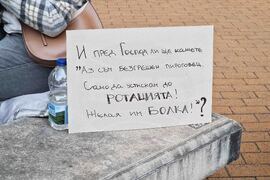 И пред Господ ли ще кажете
"Аз съм безгрешен пироговец
Само да изккан до
РОТАЦИЯТА!
Желая им БОЛКА!"?